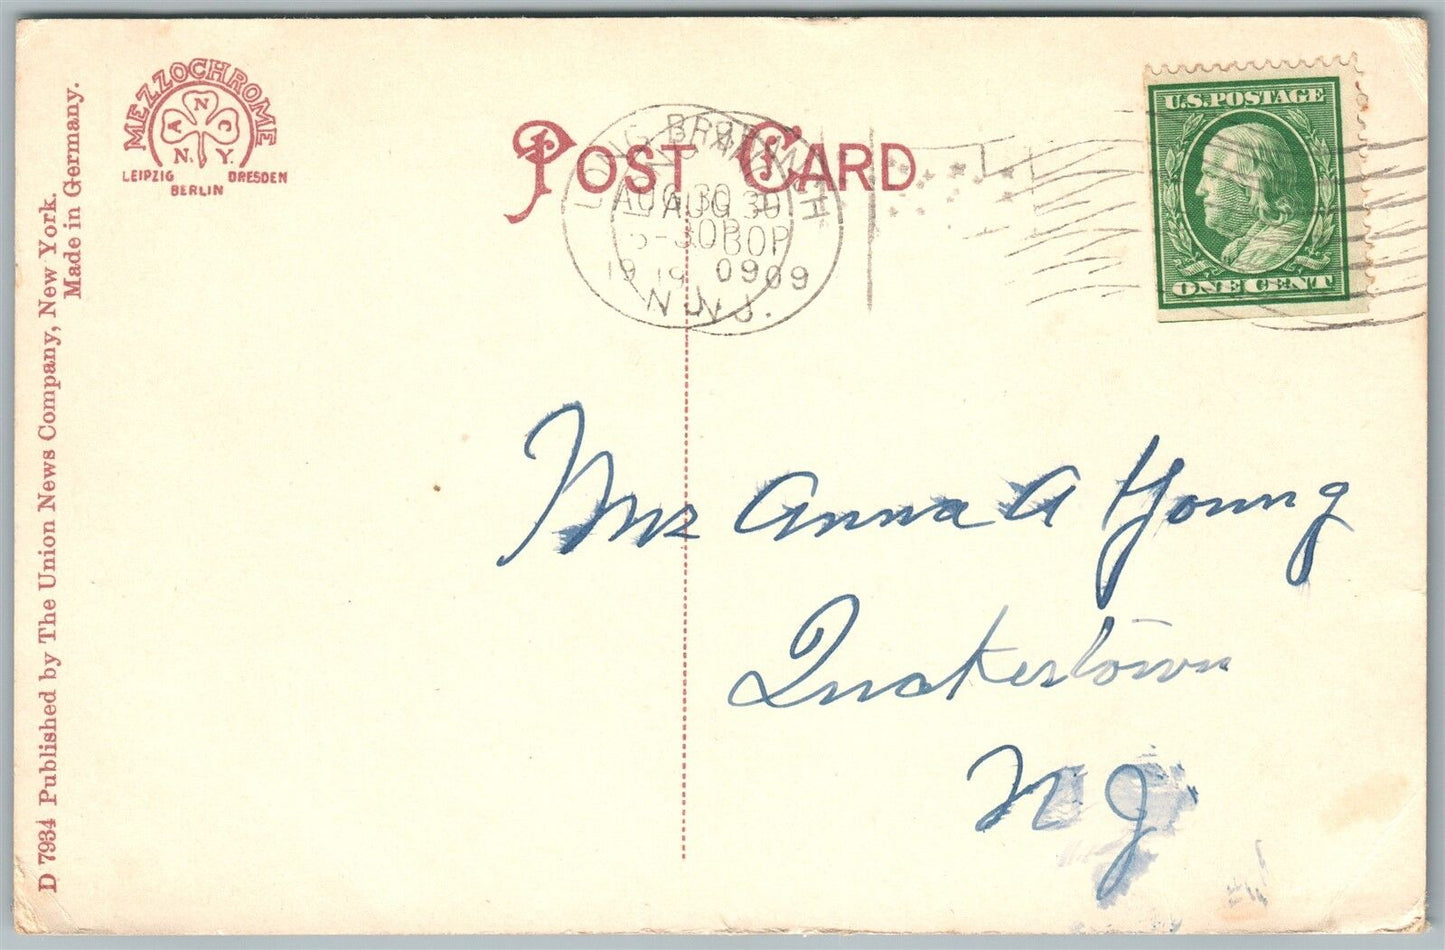 MEZZOCHROME
A N C
N. Y.
LEIPZIG DRESDEN
BERLIN
D 7934 Published by The Union News Company, New York.
Made in Germany.
POST CARD
LONG BRANCH
AUG 30 AUG 30
-30P 30P
19 19 0909
N.J. N.J.
U.S. POSTAGE
ONE CENT
Mrs Anna A Young
Quakertown
N J